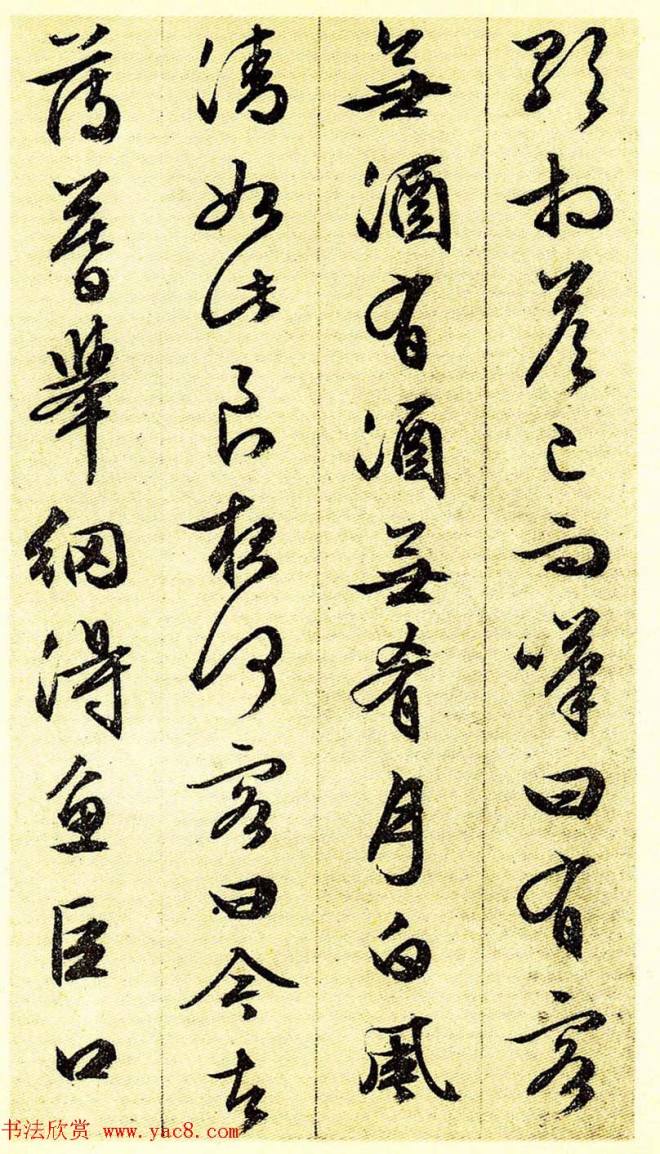 歌相答已而嘆曰有客
無酒有酒無肴月白風
清如此良夜何客曰今者
薄暮舉網得魚巨口
书法欣赏 www.yac8.com